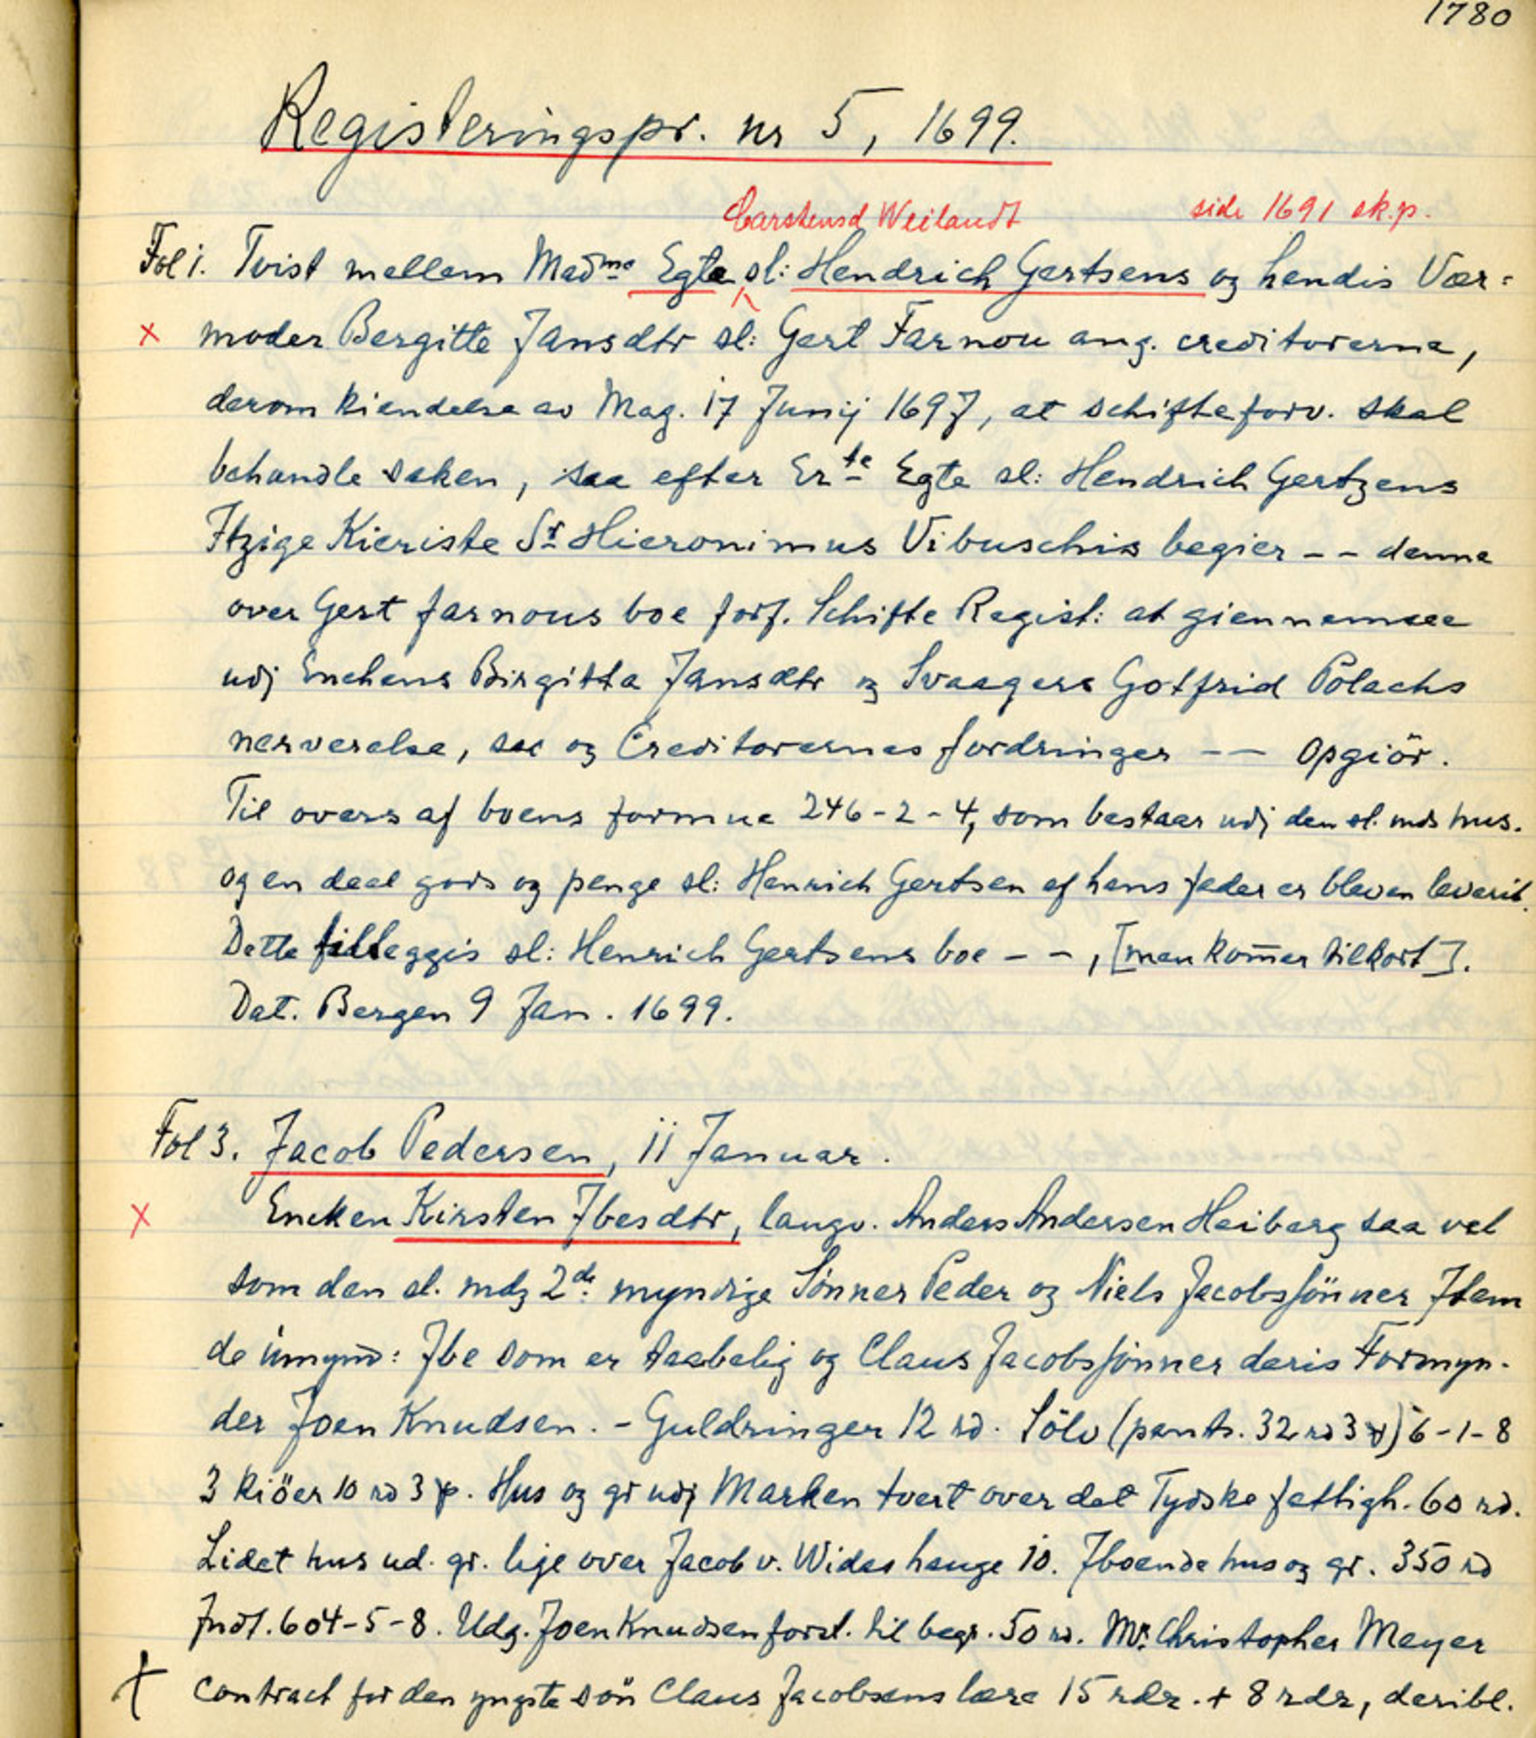 1780
Registeringspr. nr 5, 1699.
Carstensd Weilandt side 1691 sk.p.
Fol 1. Tvist mellem Madme Egte sl: Hendrich Gertsens og hendis Vær=
x moder Bergitte Jansdtr sl: Gert Farnou ang. creditorerne,
derom kiendelse av Mag. 17 Junij 1697, at schifteforv. skal
behandle saken, saa efter Erte Egte sl: Hendrich Gertzens
Itzige Kieriste Sr Hieronimus Vibuschis begier -- denne
over Gert farnous boe forf. Schifte Regist: at giennemsee
udj Enchens Birgitta Jansdtr og Svaagers Gotfrid Polachs
nerverelse, saa og Creditorernes fordringer -- opgiör.
Til overs af boens formue 246-2-4, som bestaar udj den sl. mds hus.
og en deel gods og penge sl: Henrich Gertsen af hans fader er bleven leverit.
Dette tilleggis sl: Henrich Gertsens boe --, [men komer tilkort].
Dat. Bergen 9 Jan. 1699.
Fol 3. Jacob Pedersen, 11 Januar.
x Encken Kirsten Ibesdtr, laugv. Anders Andersen Heiberg saa vel
som den sl. mdz 2de myndige Sönner Peder og Niels Jacobssönner Item
de úmynd: Ibe som er taabelig og Claus Jacobssönner deris Formyn-
der Joen Knudsen. - Guldringer 12 rd. Sölv (pants. 32 rd 3 ) 6-1-8
3 kiöer 10 rd 3 . Hus og gr udj Marken tvert over det Tydske fattigh. 60 rd.
Lidet hus ud. gr. lige over Jacob v. Wides hauge 10. Iboende hus og gr. 350 rd
Indt. 604-5-8. Udg. Joen Knudsen forst. til begr. 50 rd. Mr Christopher Meyer
+ contract for den yngste sön Claus Jacobsens lære 15 rdr. + 8 rdr, deribl.